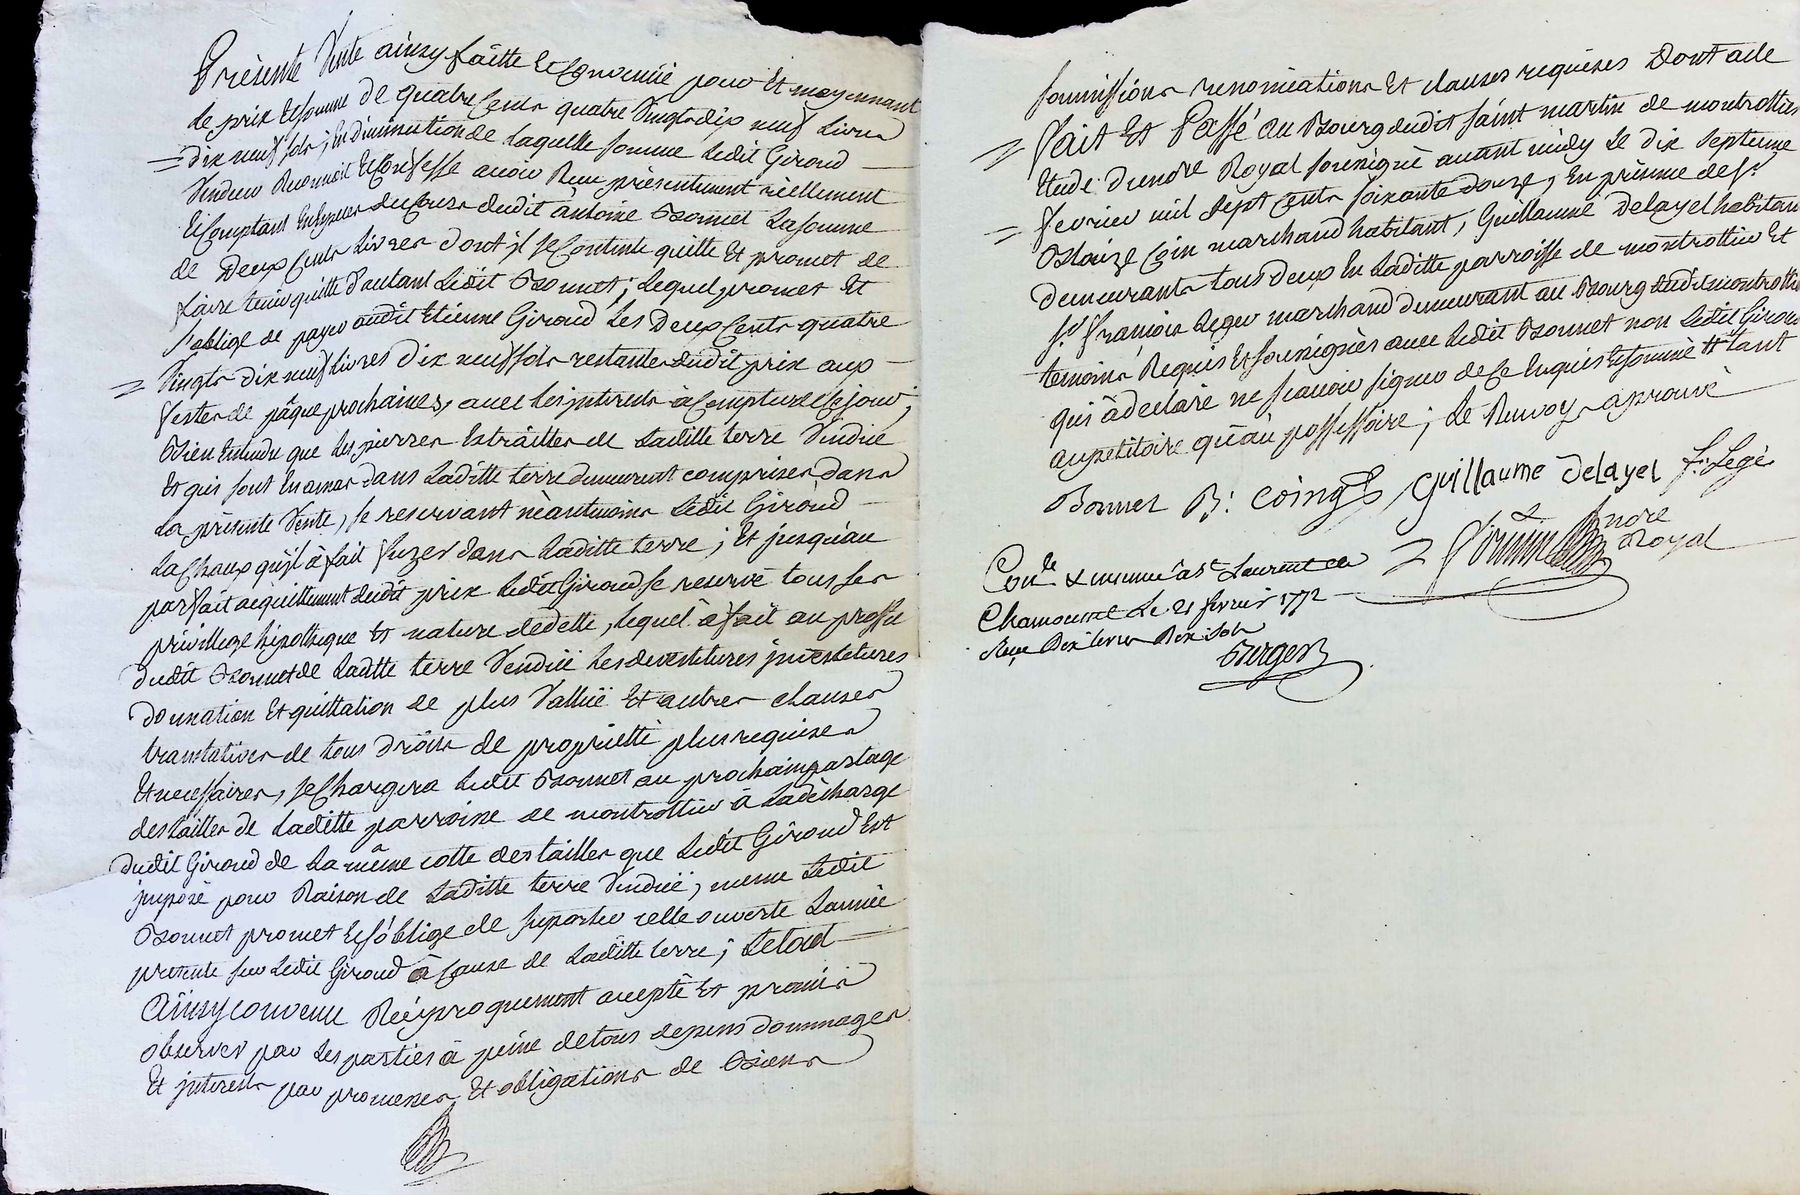 Présente Vente ainsy faitte Et Convenüe pour Et moyennant
le prix Et somme de quatre Cents quatre Vingts dix neuf Livres
dix neuf sols ; En diminution de Laquelle somme Ledit Giroud
Vendeur Reconnoit Et Confesse avoir Reçu présentement réellement
Et Comptant En Especes du Cours dudit antoine Bonnet La somme
de Deux Cents Livres dont jl se Contente quitte Et promet de
faire tenir quitte d'autant Ledit Bonnet ; Lequel promet Et
s'oblige de payer audit Etienne Giroud Les Deux Cents quatre
Vingts dix neuf Livres dix neuf sols restantes dudit prix aux
festes de pâque prochaines, avec Les jnterests à Compter de Ce jour ;
Bien Entendu que Les pierres Extraittes de Laditte terre Vendüe
Et qui sont En amas dans Laditte terre demeurent comprises dans
La présente Vente, se reservant néantmoins Ledit Giroud
La Chaux qu'jl à fait fuzer dans Laditte terre ; Et jusqu'au
parfait acquittement dudit prix Ledit Giroud se reserve tous ses
privillege hipotheque Et nature de dette, lequel à fait au proffit
dudit Bonnet de Laditte terre Vendüe Les devestitures jnvestitures
Donnation Et quittation de plus Vallüe Et autres clauses
translatives de tous droits de propriétté plus requises
Et necessaires, se Chargera Ledit Bonnet au prochain partage
des tailles de Laditte parroisse de montrottier à La décharge
dudit Giroud de La même cotte des tailles que Ledit Giroud Est
jmposé pour Raison de Laditte terre Vendüe, meme Ledit
Bonnet promet Et s'oblige de suporter celle ouverte L'année
presente sur Ledit Giroud à Cause de Laditte terre ; Le tout
Ainsy convenu Réciproquement accepté Et promis
observer par Les parties à peine de tous depens dommages
Et jnterests par promesses Et obligations de Biens
soumissions renonciations Et clauses requises Dont acte
fait Et Passé au Bourg dudit saint martin de montrottier
Etude du nore Royal soussigné avant midy Le dix septieme
fevrier mil sept Cents soixante douze, En présence de sr
Blaize Coin marchand habitant, Guillaume Delayel habitan
demeurants tous deux En Laditte parroisse de montrottier Et
sr françois Leger marchand demeurant au Bourg dudit montrottier
temoins Requis Et soussignés avec Ledit Bonnet non Ledit Giroud
qui à declaré ne scavoir signer de Ce Enquis Et sommé # tant
au petitoire qu'au possessoire ; Le Renvoy aprouvé
Bonnet B: coing Guillaume Delayel f. Legé
nore
Royal
Con.le & insinué a St Laurent de
Chamousset Le 21 fevrier 1772
Reçu Dix livres Dix sols
Burger